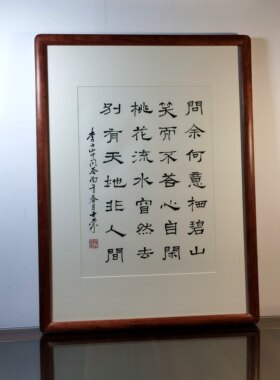 問余何意栖碧山
笑而不答心自閑
桃花流水窅然去
別有天地非人間
李白山中問答